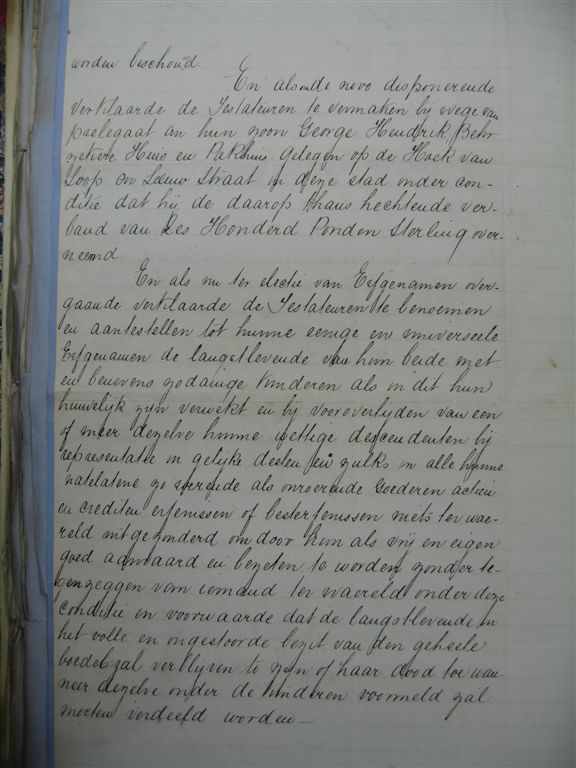 worden beschoud.
En als mde novo disponerende
verklaarde de Testateuren te vermaken bij wege van
praelegaat an hun zoon George Hendrik Behr
zekere Huis en Pakhuis gelegen op de Hoek van
Loop en Leeuw Straat in deze stad onder con-
ditie dat hij de daarop thans hechtende ver-
band van Zes Honderd Ponden Sterling over-
neemd.
En als nu ter electie van Erfgenamen over-
gaande verklaarde de Testateuren te benoemen
en aantestellen tot hunne eenige en universeele
Erfgenamen de langstlevende van hun beide met
en benevens zodanige kinderen als in dit hun
huwelijk zyn verwekt en bij vooroverlyden van een
of meer dezelve hunne wettige descendenten bij
representatie in gelijke deelen en zulks in alle hunne
natelatene zo roerende als onroerende Goederen actien
en crediten erfenissen of besterfenissen niets ter wae-
reld uitgezonderd om door hun als vrij en eigen
goed aanvaard en bezeten te worden zonder te-
genzeggen van iemand ter waereld onder deze
conditie en voorwaarde dat de langstlevende in
het volle en ongestoorde bezit van den geheele
boedel zal verblyven to zyn of haar dood toe wan-
neer dezelve onder de kinderen voormeld zal
moeten verdeeld worden —